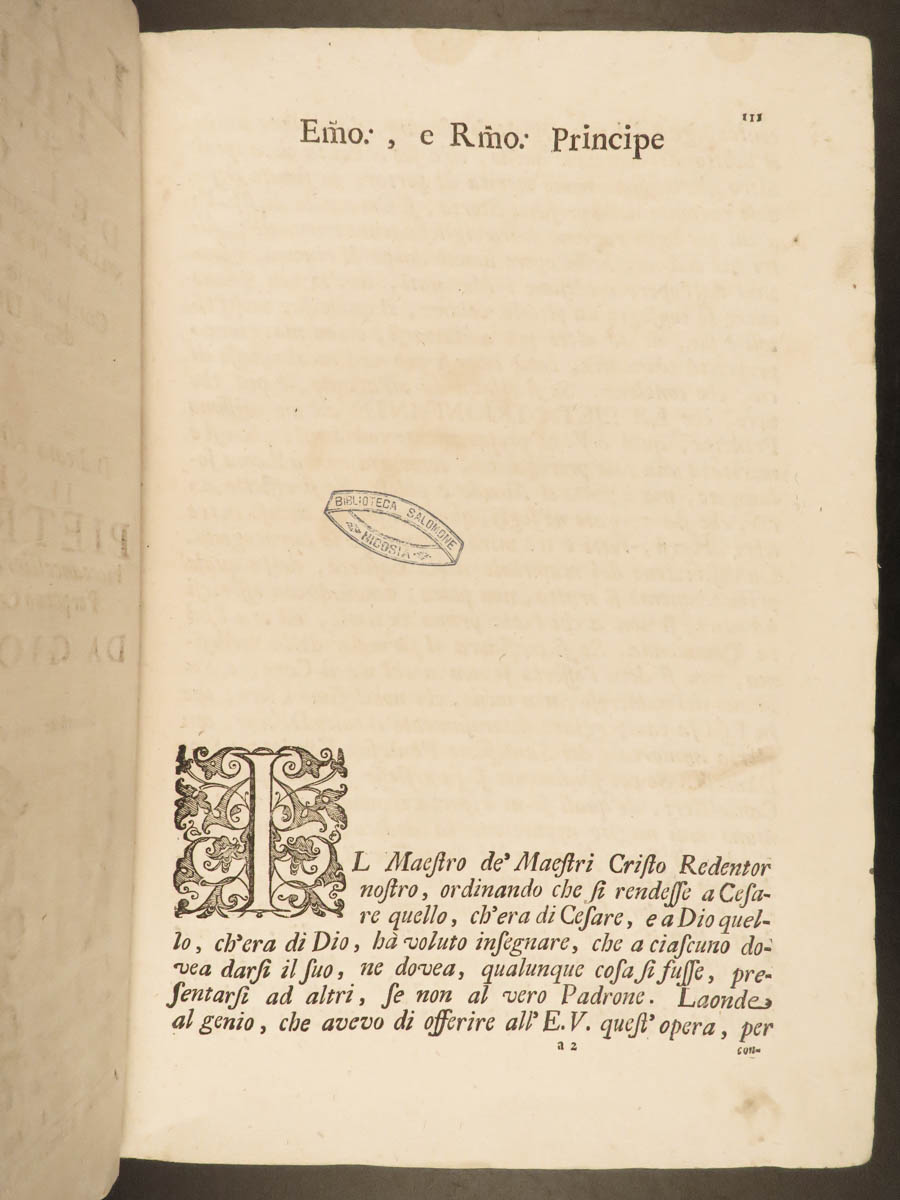 III
Em̃o: , e Rm̃o: Principe
BIBLIOTECA SALOMONE
NICOSIA
IL Maeſtro de' Maeſtri Criſto Redentor
noſtro, ordinando che ſi rendeſſe a Ceſa-
re quello, ch'era di Ceſare, e a Dio quel-
lo, ch'era di Dio, hà voluto inſegnare, che a ciaſcuno do-
vea darſi il ſuo, ne dovea, qualunque coſa ſi fuſſe, pre-
ſentarſi ad altri, ſe non al vero Padrone. Laonde
al genio, che avevo di offerire all'E.V. queſt' opera, per
a 2
con-
PIETR
DA GIO